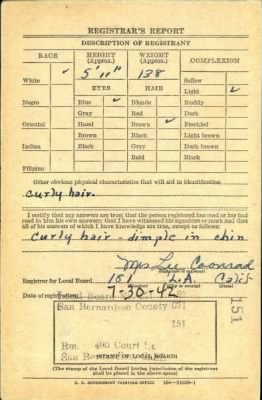 REGISTRAR'S REPORT
DESCRIPTION OF REGISTRANT
RACE HEIGHT (Approx.) WEIGHT (Approx.) COMPLEXION
5' 11" 138
White ✓ Sallow
EYES HAIR Light ✓
Negro Blue ✓ Blonde Ruddy
Gray Red Dark
Oriental Hazel Brown ✓ Freckled
Brown Black Light brown
Indian Black Gray Dark brown
Bald Black
Filipino
Other obvious physical characteristics that will aid in identification
curly hair.
I certify that my answers are true; that the person registered has read or has had read to him his own answers; that I have witnessed his signature or mark and that all of his answers of which I have knowledge are true, except as follows:
curly hair - dimple in chin
Mrs Lee Coonrad
(Signature of registrar)
Registrar for Local Board 151 L.A. Calif
Date of registration 7-30-42
Local Board
San Bernardino County
151
151
Rm. 490 Court
San Bernardino
(STAMP OF LOCAL BOARD)
(The stamp of the Local Board having jurisdiction of the registrant shall be placed in the above space)
U. S. GOVERNMENT PRINTING OFFICE